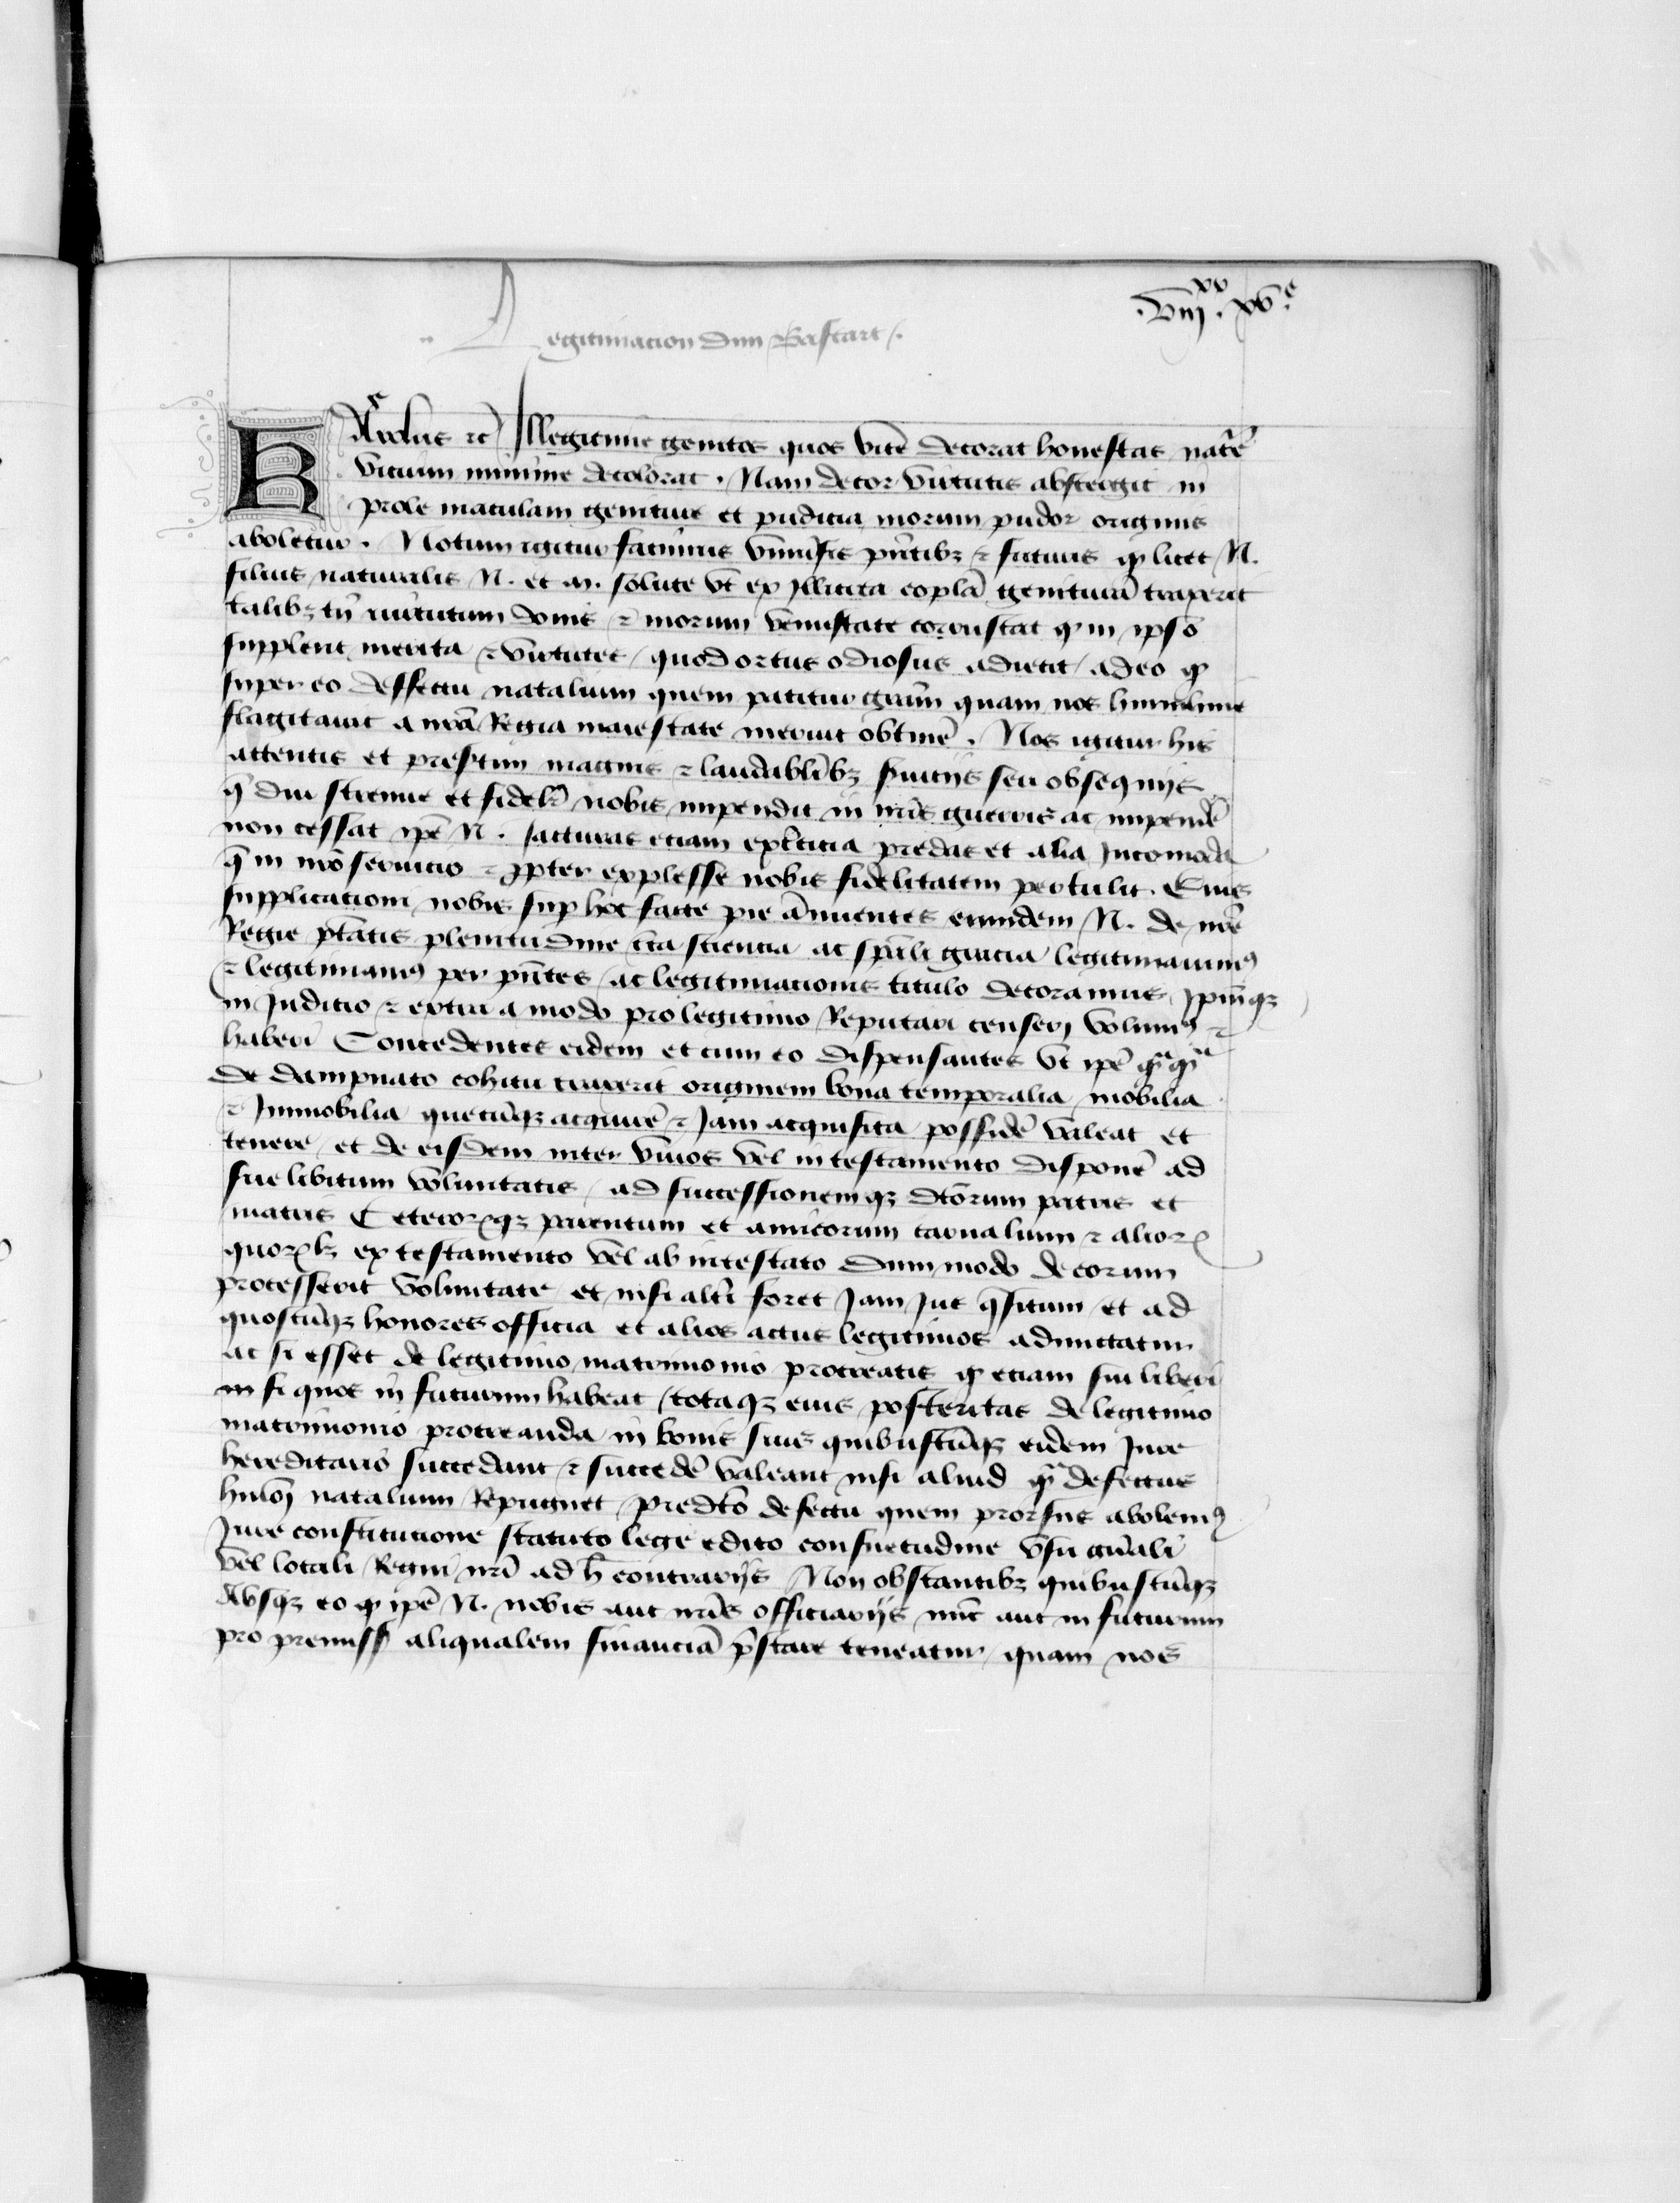 .viij.xx xve.
Legitimacion dun Bastart /.
Karolus etc Illegitime genitos quos vite decorat honestas nature
vicium minime decolorat . Nam decor virtutis abstergit in
prole maculam geniture et pudicia morum pudor originis
aboletur . Notum igitur facimus vniusis pñtibz ⁊ futuris qp licet N.
filius naturalis N. et M. solute vt ex illicita copla genitura traxerit
talibz tñ virtutum donis ⁊ morum venustate coruscat qp in ipso
supplent merita ⁊ virtutes / quod ortus odiosus adiecit / adeo qp
super eo deffectu natalium quem patitur gram quam nos humilime
flagitauit a nra Regia maiestate meruit obtine . Nos igitur his
attentis et presertim magnis ⁊ laudabilibz seruicijs seu obsequijs
q diu strenue et fidelr nobis impendit in nris guerris ac impende
non cessat ipe N. Jacturas eciam expleticia predas et alia Incomoda
q in nro seruicio ⁊ propter explesse nobis fidelitatem pertulit . Eius
supplicacioni nobis sup hoc facte pie annuentes eumdem N. de nre
Regie ptatis plenitudine cta sciencia ac spali gracia legitimauimus
⁊ legitimamus per pntes / ac legitimacionis titulo decoramus / Ipmqz
in Judicio ⁊ extra a modo pro legitimo Reputari censeri volumus ⁊
haberi Concedentes eidem et cum eo dispensantes vt ipe qmqm
de dampnato cohitu traxerit originem bona temporalia mobilia
⁊ Immobilia quecuqz acquire ⁊ Jam acquisita posside valeat et
tenere / et de eisdem inter viuos vel in testamento dispone ad
sue libitum voluntatis / ad successionemqz dtorum patris et
matris Ceterorqz parentum et amicorum carnalium ⁊ alior
quorlz ex testamento vel ab intestato dummodo de eorum
processerit voluntate et nisi altri foret Jam Jus qsitum / et ad
quoscuqz honores officia et alios actus legitimos admittatur
ac si esset de legitimo matrimonio procreatis qp etiam sui liberi
si quos in futurum habeat / totaqz eius posteritas de legitimo
matrimonio procreanda in bonis suis quibuscuqz eidem Jure
hereditario succedant ⁊ succede valeant nisi aliud qm defectus
huioi natalium Repugnet / predto defectu quem prorsus abolemus
Jure constitucione statuto lege edito consuetudine vsu gnali
vel locali Regni nri ad h contrarijs Non obstantibz quibuscuqz
Absqz eo qp ipe N. nobis aut nris officiarijs nuc aut in futurum
pro premiss aliqualem financia pstare teneatur / quam nos